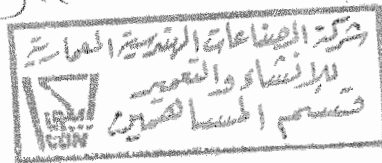 شركة الصناعات الهندسية المعمارية
للإنشاء والتعمير
قسم المساهمين